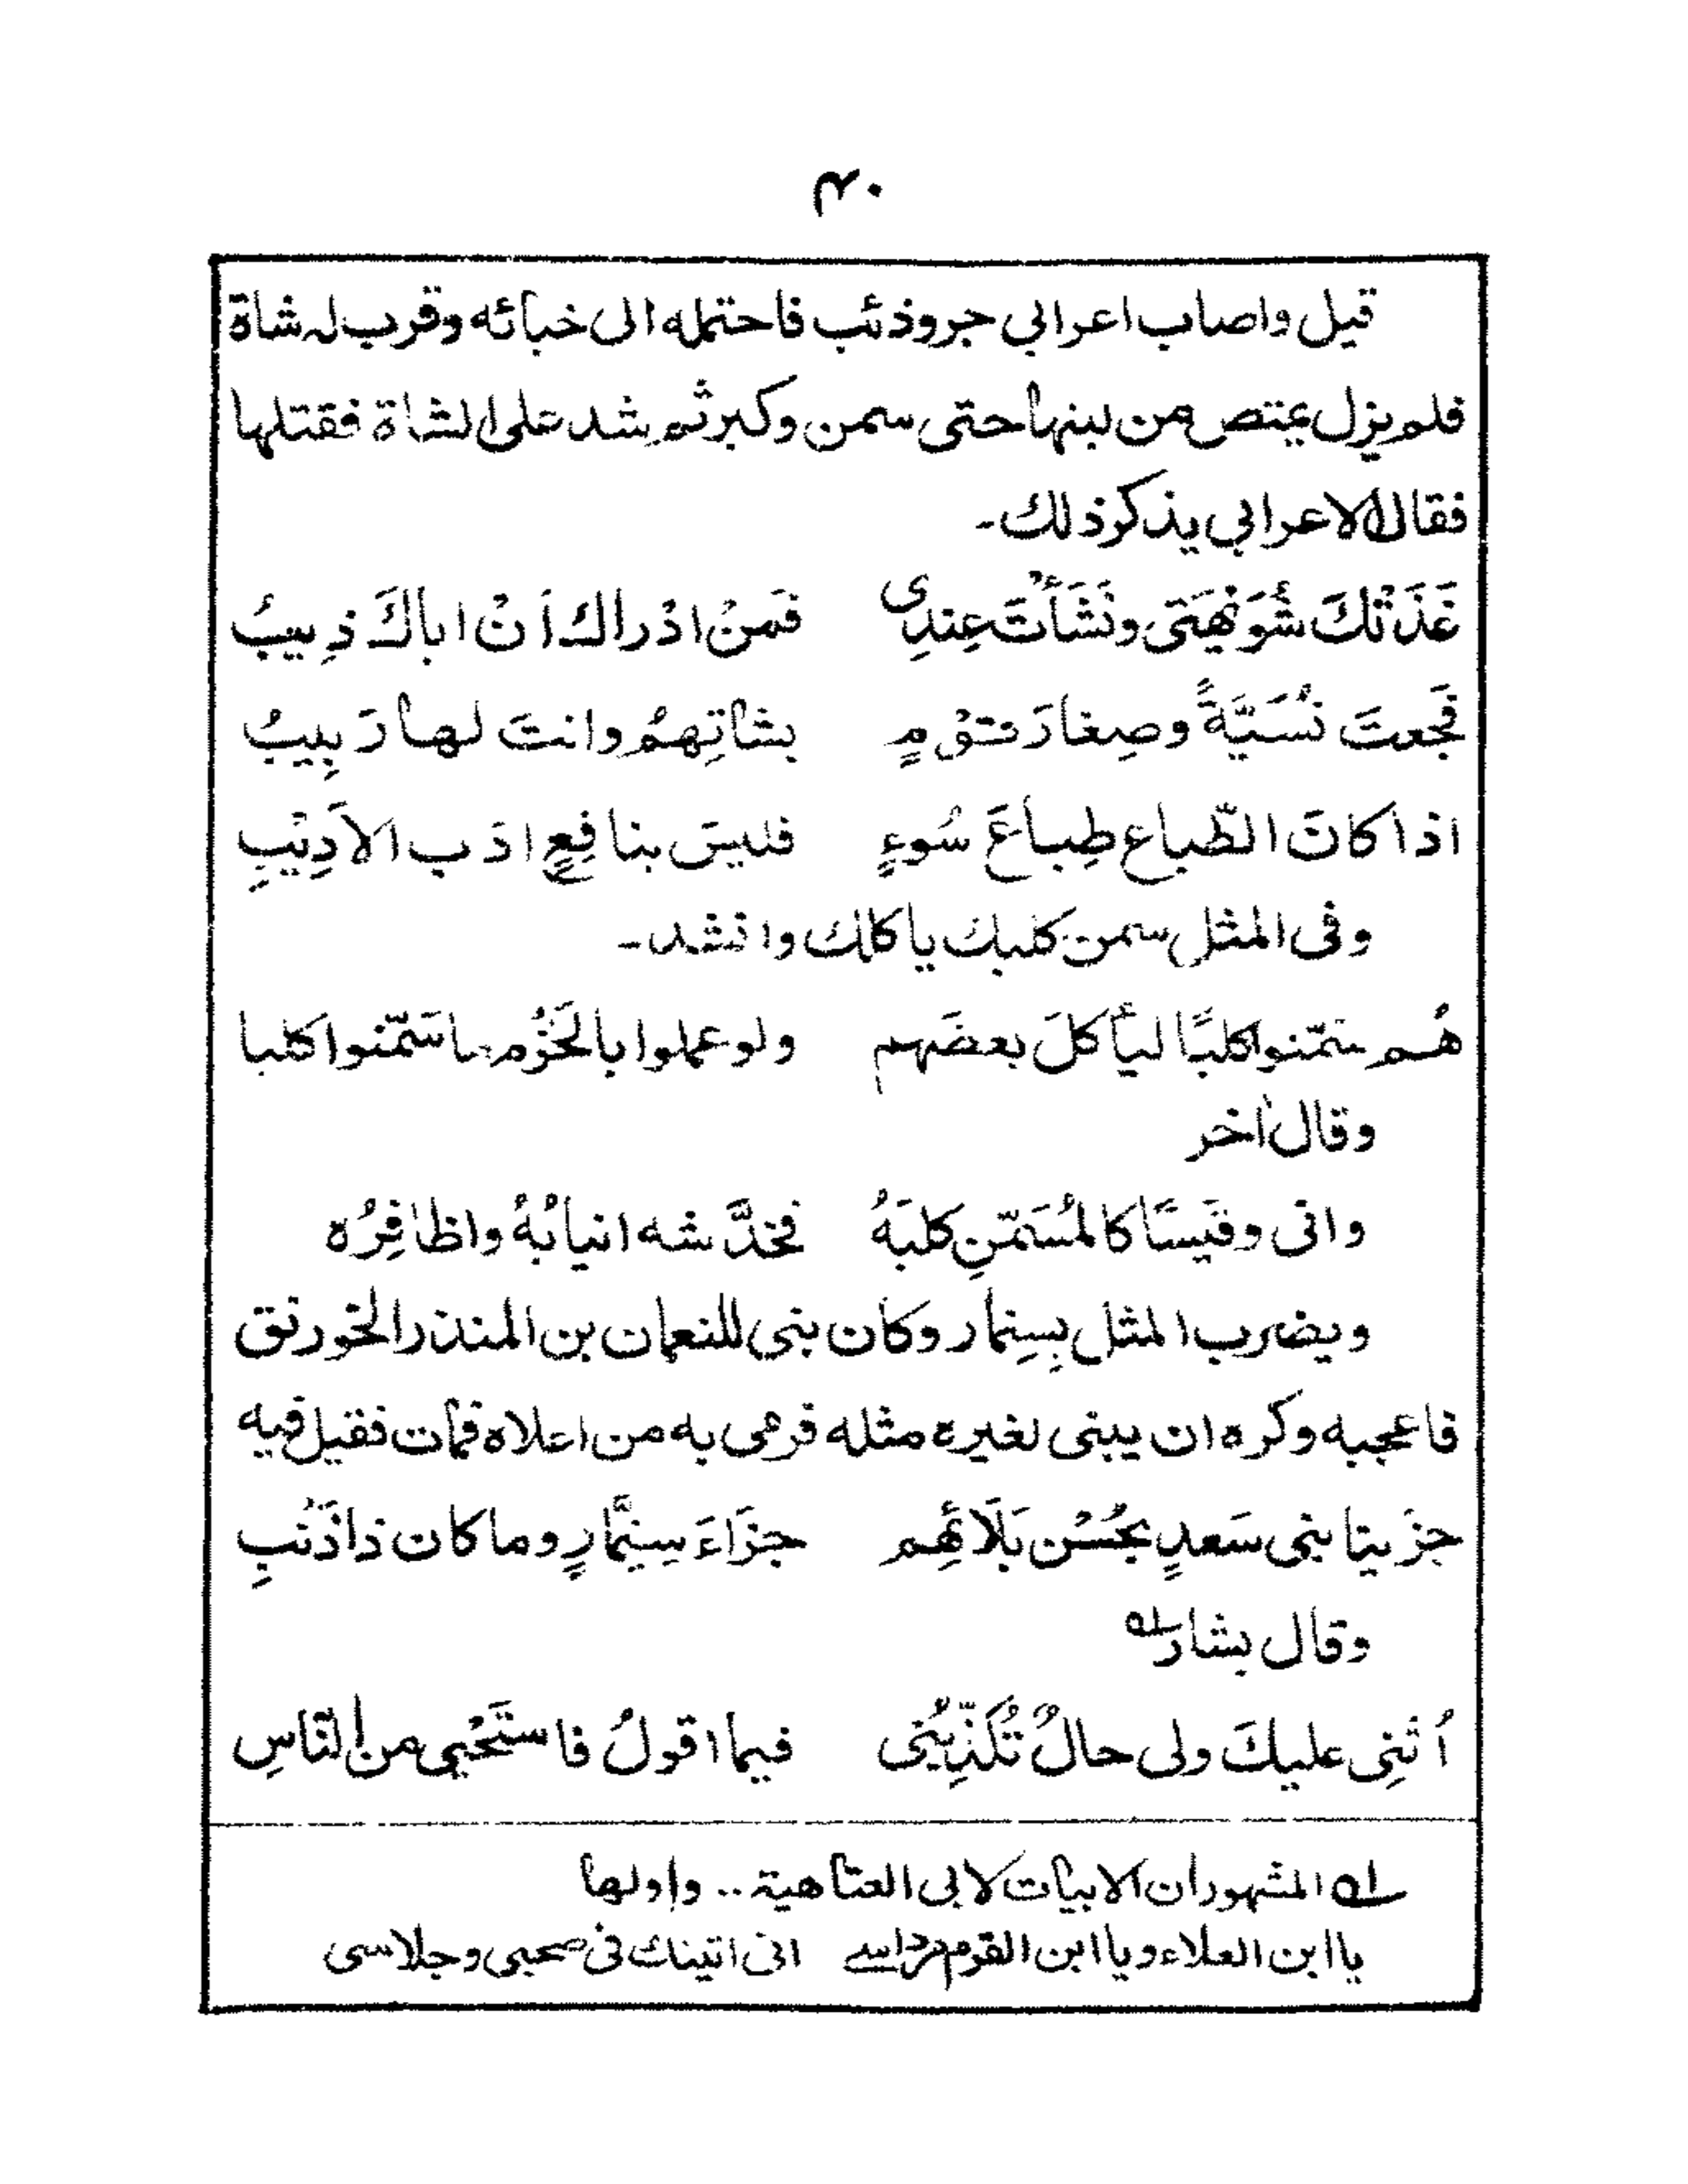 ۴۰
قيل واصاب اعرابي جروذئب فاحتمله الى خبائه وقرب له شاة
فلم يزل يمتص من لبنها حتى سمن وكبر ثم شد على الشاة فقتلها
فقال الاعرابي يذكر ذلك۔
غَذَتْكَ شُوَيْهَتى ونَشَأْتَ عِندِى فَمَنْ ادْراك اَنْ اباكَ ذِيبُ
فَجعتَ نُسَيَّةً وصِغارَ قوْمٍ بشاتِهمُ وانتَ لها رَبِيبُ
اذا كانَ الطّباع طِباعَ سُوءٍ فليسَ بنافِعٍ ادَب الاَدِيْبِ
وفى المثل سمن كلبك ياكلك وانشد۔
هُم سَمّنوا كلبًا ليأكلَ بعضَهم ولو عملوا بالحَزْم ما سَمّنوا كلبا
وقال اٰخر
وانى وقَيسًا كالمُسَمّنِ كلبَهُ فخدَّشه انيابُهُ واظافِرُه
ويضرب المثل بِسِنِمار وكان بنى للنعمان بن المنذر الخورنق
فاعجبه وكره ان يبنى لغيره مثله فرمى به من اعلاه فمات فقيل فيه
جزَيتا بنى سَعدٍ بحُسْن بَلَائهِم جزَاءَ سِنِمَّارٍ وما كان ذا ذَنْبِ
وقال بشار ؎۱
اُثنِى عليكَ ولى حالٌ تُكَذِّبُنى فيما اقولُ فاستَحْيِى من النّاسِ
؎۱ المشهور ان الابيات لابى العتاهية .. واولها
يا ابن العلاء ويا ابن القرم مرداسے انى اتيتك فى صحبى وجلاسى